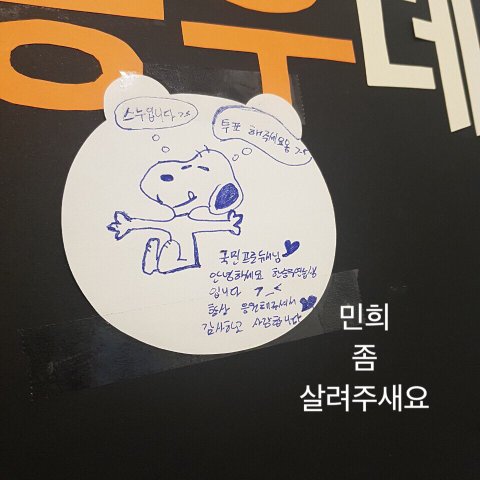 우데
스누입니다 >.<
투표 해주세요옹 >.<
국민프로듀서님
안녕하세요 한승우연습생
입니다 >_<
항상 응원해주셔서
감사하고 사랑합니다
민희
좀
살려주새요